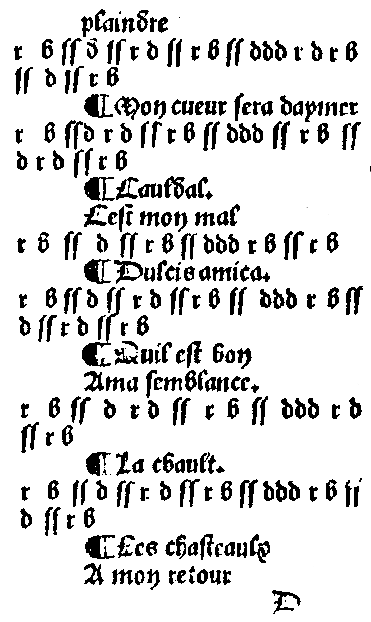 plaindre
r b ſſ d ſſ r d ſſ r b ſſ ddd r d r b
ſſ d ſſ r b
¶ Mon cueur ſera daymer
r b ſſd r d ſſ r b ſſ ddd ſſ r b ſſ
d r d ſſ r b
¶ Lauldal.
Ceſt mon mal
r b ſſ d ſſ r b ſſ ddd r b ſſ r b
¶ Dulcis amica.
r b ſſ d ſſ r d ſſ r b ſſ ddd r b ſſ
d ſſ r d ſſ r b
¶ Quil eſt bon
Ama ſemblance.
r b ſſ d r d ſſ r b ſſ ddd r d
ſſ r b
¶ La chault.
r b ſſ d ſſ r d ſſ r b ſſ ddd r b ſſ
d ſſ r b
¶ Les chaſteaulx
A mon retour
D